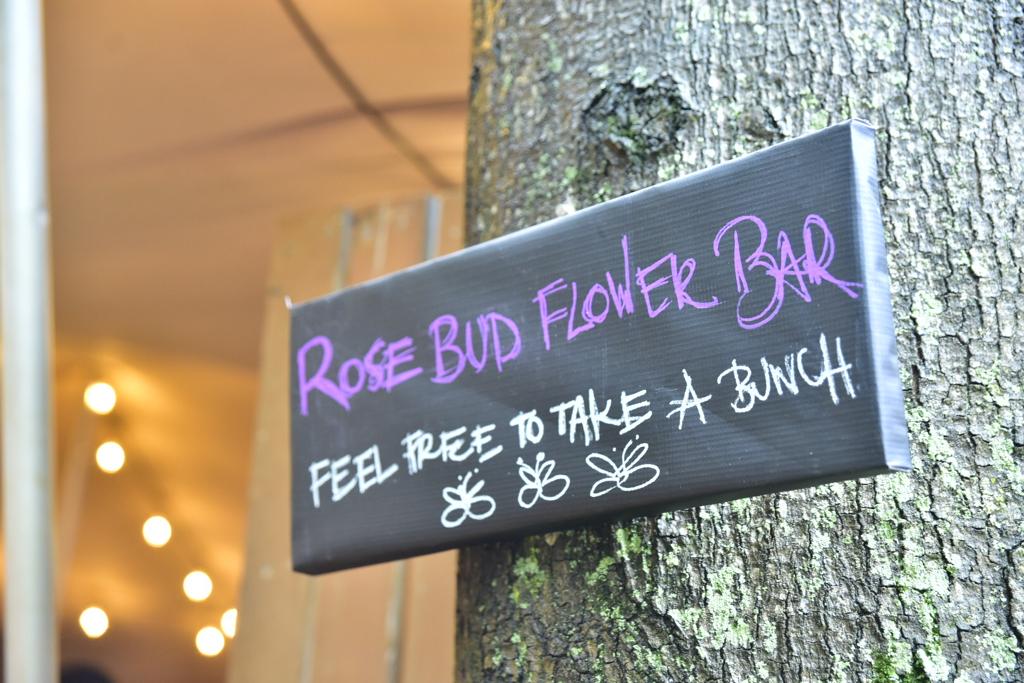 ROSE BUD FLOWER BAR
FEEL FREE TO TAKE A BUNCH